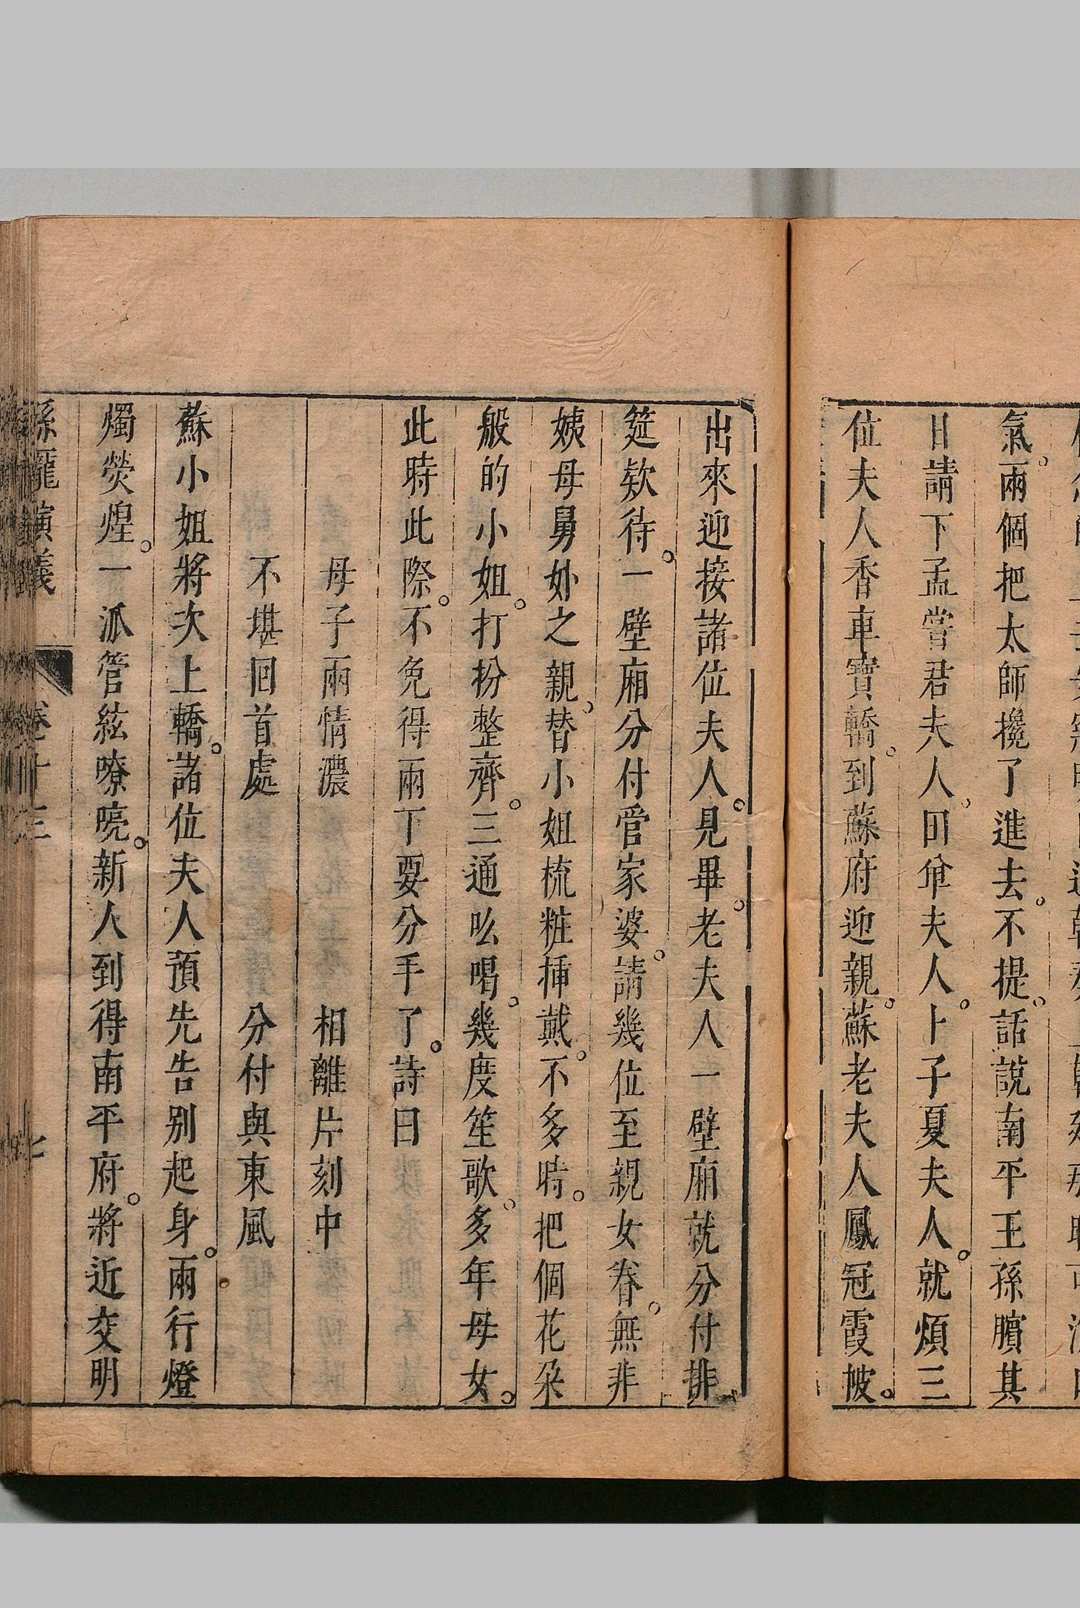 氣。兩個把太師攙了進去。不提。話說南平王孫臏其
日請下孟嘗君夫人、田單夫人。卜子夏夫人。就煩三
位夫人香車寶轎。到蘇府迎親。蘇老夫人鳳冠霞帔。
出來迎接諸位夫人。見畢。老夫人一壁廂就分付排
筵欵待。一壁廂分付管家婆。請幾位至親女眷。無非
姨母舅妳之親。替小姐梳粧揷戴。不多時。把個花朶
般的小姐。打扮整齊。三通吆喝。幾度笙歌。多年母女。
此時此際。不免得兩下要分手了。詩曰
母子兩情濃 相離片刻中
不堪回首處 分付與東風
蘇小姐將次上轎。諸位夫人預先告别起身。兩行燈
燭熒煌。一派管絃嘹喨。新人到得南平府。將近交明
孫龐演義 卷十三 七